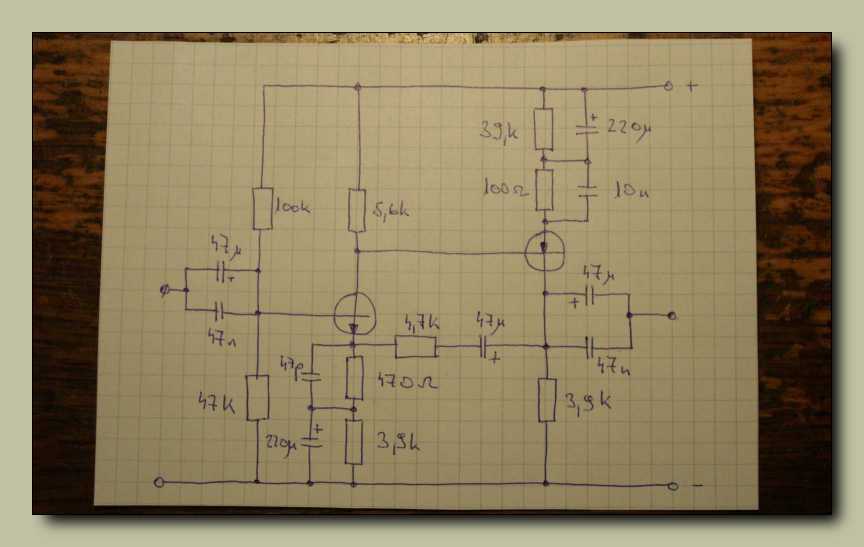 +
39k
+
220µ
100Ω
10n
100k
5,6k
47µ
+
47n
47µ
+
4,7k
47µ
+
47n
47p
470Ω
47K
3,9k
220µ
+
3,9k
-